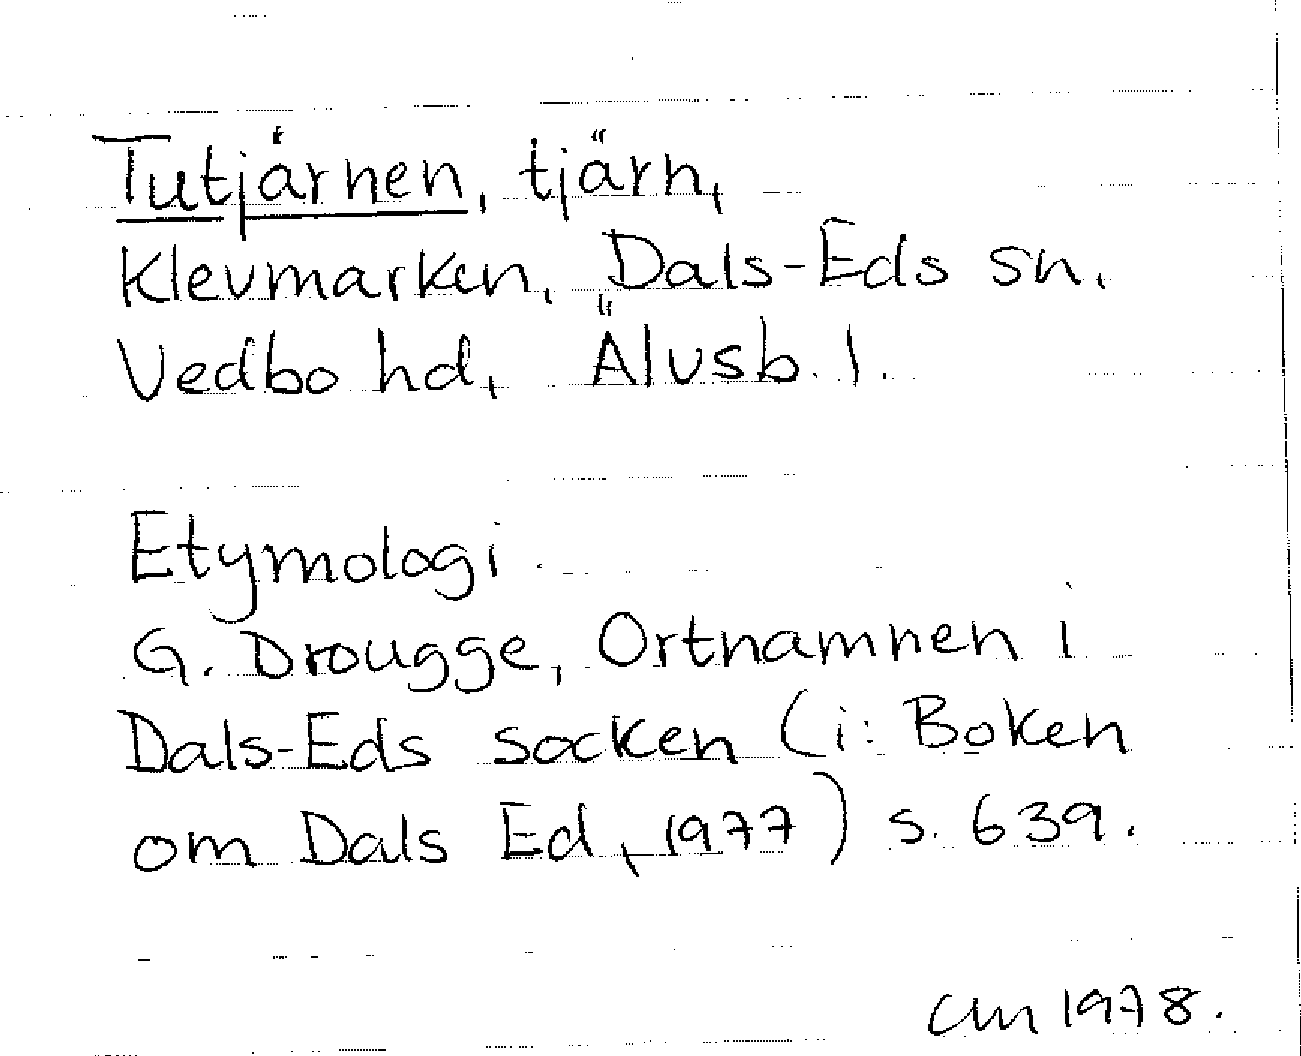 Tutjärnen, tjärn,
Klevmarken, Dals-Eds sn.
Vedbo hd, Älvsb. l.
Etymologi
G. Drougge, Ortnamnen i
Dals-Eds socken (i: Boken
om Dals Ed, 1977) s. 639.
CM 1978.